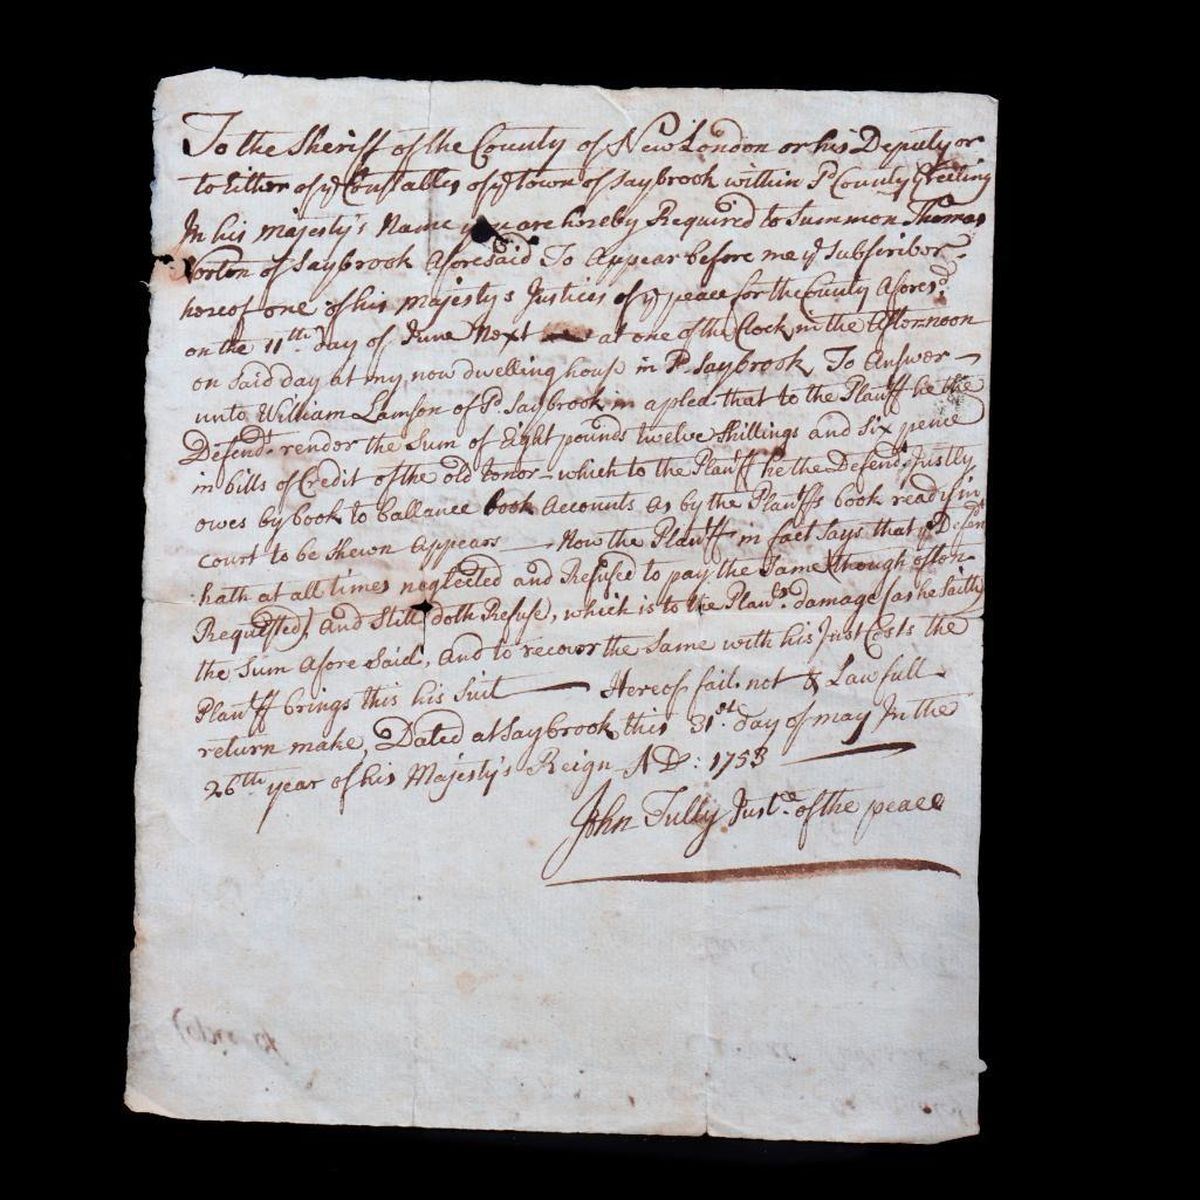 To the Sheriff of the County of New London or his Deputy or
to Either of ye Constables of ye town of Saybrook within Sd County Greeting
In his majesty's Name you are hereby Required to Summon Thomas
Norton of Saybrook Aforesaid To Appear before me ye Subscriber
hereof one of his majestys Justices of ye peace for the County Aforesd
on the 11th day of June Next at one of the Clock in the Afternoon
on Said day at my now dwelling house in Sd Saybrook To Answer
unto William Lamson of Sd Saybrook in a plea that to the Plantff he the
Defendt render the Sum of Eight pounds twelve Shillings and Six pence
in bills of Credit of the old tenor - which to the Plantff he the Defendt Justly
owes by book to ballance book Accounts as by the Plantffs book ready in
court to be Shewn Appears — Now the Plantff in fact Says that ye Defent
hath at all times neglected and Refused to pay the Same (though often
Requested) and Still doth Refuse, which is to the Plantfs damage (as he saith)
the Sum Afore Said, and to recover the Same with his Just Costs the
Plantff brings this his Suit — Hereof fail not & Lawfull
return make, Dated at Saybrook this 31st day of may In the
26th year of his Majesty's Reign AD: 1753
John Tully Juste of the peace